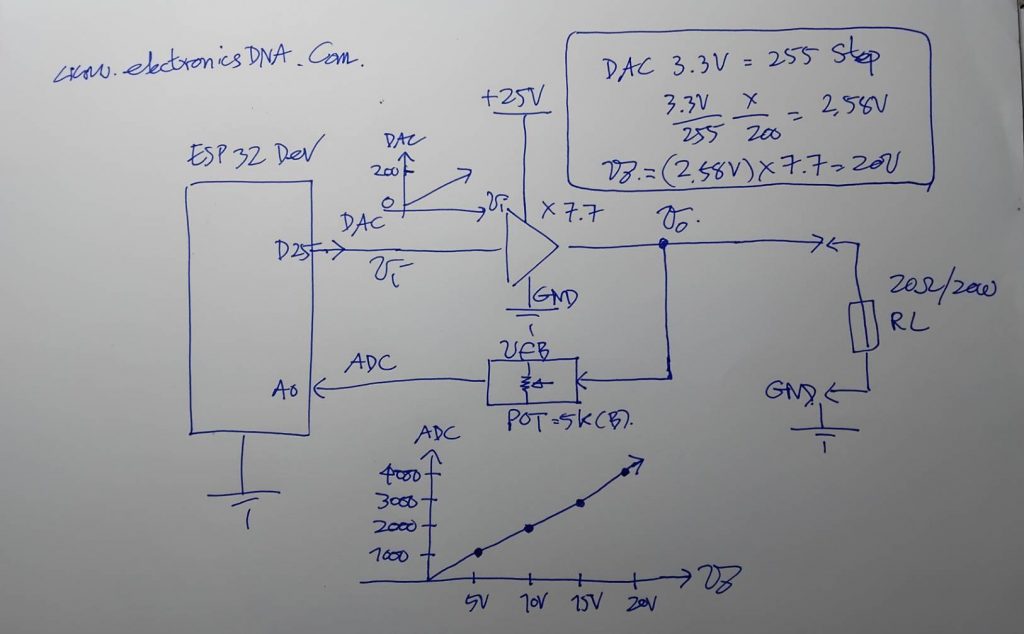 www.electronicsDNA.Com.
DAC 3.3V = 255 Step
3.3V/255 x/200 = 2,58V
V0.=(2.58V)x7.7=20V
+25V
ESP32 Dev
DAC
200
0
Vi
x7.7
Vo.
D25
DAC
Vi
GND
20Ω/20W
RL
VFB
ADC
A0
POT=5K(B).
GND.
ADC
4000
3000
2000
1000
5V 10V 15V 20V
V0